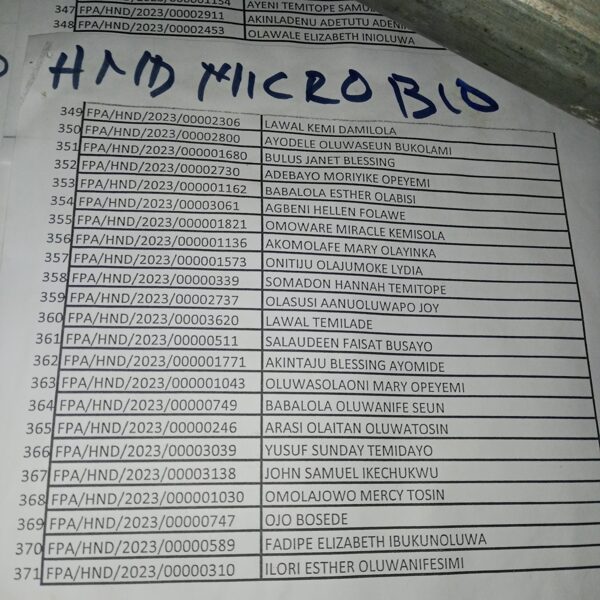 347 FPA/HND/2023/00002911 AKINLADENU ADETUTU
348 FPA/HND/2023/00002453 OLAWALE ELIZABETH INIOLUWA
HND MICRO BIO
349 FPA/HND/2023/00002306 LAWAL KEMI DAMILOLA
350 FPA/HND/2023/00002800 AYODELE OLUWASEUN BUKOLAMI
351 FPA/HND/2023/000001680 BULUS JANET BLESSING
352 FPA/HND/2023/00002730 ADEBAYO MORIYIKE OPEYEMI
353 FPA/HND/2023/000001162 BABALOLA ESTHER OLABISI
354 FPA/HND/2023/00003061 AGBENI HELLEN FOLAWE
355 FPA/HND/2023/000001821 OMOWARE MIRACLE KEMISOLA
356 FPA/HND/2023/000001136 AKOMOLAFE MARY OLAYINKA
357 FPA/HND/2023/000001573 ONITIJU OLAJUMOKE LYDIA
358 FPA/HND/2023/00000339 SOMADON HANNAH TEMITOPE
359 FPA/HND/2023/00002737 OLASUSI AANUOLUWAPO JOY
360 FPA/HND/2023/00003620 LAWAL TEMILADE
361 FPA/HND/2023/00000511 SALAUDEEN FAISAT BUSAYO
362 FPA/HND/2023/000001771 AKINTAJU BLESSING AYOMIDE
363 FPA/HND/2023/000001043 OLUWASOLAONI MARY OPEYEMI
364 FPA/HND/2023/00000749 BABALOLA OLUWANIFE SEUN
365 FPA/HND/2023/00000246 ARASI OLAITAN OLUWATOSIN
366 FPA/HND/2023/00003039 YUSUF SUNDAY TEMIDAYO
367 FPA/HND/2023/00003138 JOHN SAMUEL IKECHUKWU
368 FPA/HND/2023/000001030 OMOLAJOWO MERCY TOSIN
369 FPA/HND/2023/00000747 OJO BOSEDE
370 FPA/HND/2023/00000589 FADIPE ELIZABETH IBUKUNOLUWA
371 FPA/HND/2023/00000310 ILORI ESTHER OLUWANIFESIMI